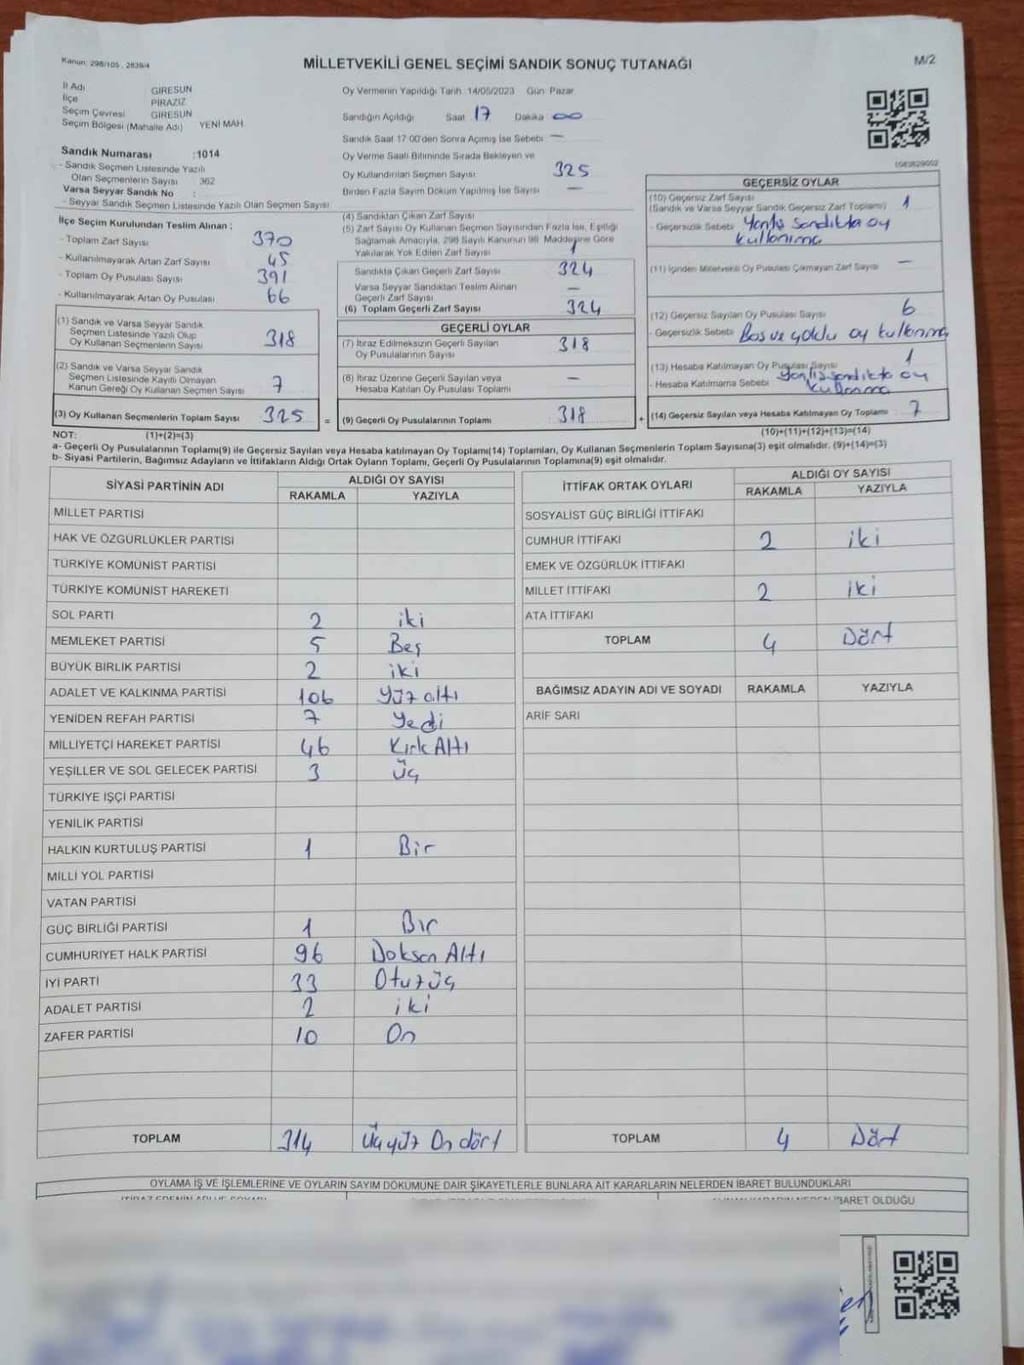 Kanun: 298/105, 2839/4
MİLLETVEKİLİ GENEL SEÇİMİ SANDIK SONUÇ TUTANAĞI
M/2
İl Adı GİRESUN
İlçe PİRAZİZ
Seçim Çevresi GİRESUN
Seçim Bölgesi (Mahalle Adı) YENİ MAH.
Oy Vermenin Yapıldığı Tarih: 14/05/2023 Gün: Pazar
Sandığın Açıldığı Saat 17 Dakika 00
Sandık Saat 17.00'den Sonra Açılmış İse Sebebi —
Sandık Numarası :1014
- Sandık Seçmen Listesinde Yazılı
Olan Seçmenlerin Sayısı 362
Varsa Seyyar Sandık No :
- Seyyar Sandık Seçmen Listesinde Yazılı Olan Seçmen Sayısı
Oy Verme Saati Bitiminde Sırada Bekleyen ve
Oy Kullandırılan Seçmen Sayısı 325
Birden Fazla Sayım Döküm Yapılmış İse Sayısı —
İlçe Seçim Kurulundan Teslim Alınan :
- Toplam Zarf Sayısı 370
- Kullanılmayarak Artan Zarf Sayısı 45
- Toplam Oy Pusulası Sayısı 391
- Kullanılmayarak Artan Oy Pusulası 66
(1) Sandık ve Varsa Seyyar Sandık
Seçmen Listesinde Yazılı Olup
Oy Kullanan Seçmenlerin Sayısı 318
(2) Sandık ve Varsa Seyyar Sandık
Seçmen Listesinde Kayıtlı Olmayan
Kanun Gereği Oy Kullanan Seçmen Sayısı 7
(3) Oy Kullanan Seçmenlerin Toplam Sayısı 325 =
(4) Sandıktan Çıkan Zarf Sayısı
(5) Zarf Sayısı Oy Kullanan Seçmen Sayısından Fazla İse, Eşitliği
Sağlamak Amacıyla, 298 Sayılı Kanunun 98. Maddesine Göre
Yakılarak Yok Edilen Zarf Sayısı 1
Sandıkta Çıkan Geçerli Zarf Sayısı 324
Varsa Seyyar Sandıktan Teslim Alınan
Geçerli Zarf Sayısı —
(6) Toplam Geçerli Zarf Sayısı 324
GEÇERLİ OYLAR
(7) İtiraz Edilmeksizin Geçerli Sayılan
Oy Pusulalarının Sayısı 318
(8) İtiraz Üzerine Geçerli Sayılan veya
Hesaba Katılan Oy Pusulası Toplamı —
(9) Geçerli Oy Pusulalarının Toplamı 318 +
GEÇERSİZ OYLAR
(10) Geçersiz Zarf Sayısı
(Sandık ve Varsa Seyyar Sandık Geçersiz Zarf Toplamı) 1
- Geçersizlik Sebebi Yanlış sandıkta oy
kullanma
(11) İçinden Milletvekili Oy Pusulası Çıkmayan Zarf Sayısı —
(12) Geçersiz Sayılan Oy Pusulası Sayısı 6
- Geçersizlik Sebebi Bos ve çoklu oy kullanma
(13) Hesaba Katılmayan Oy Pusulası Sayısı 1
- Hesaba Katılmama Sebebi Yanlış sandıkta oy
kullanma
(14) Geçersiz Sayılan veya Hesaba Katılmayan Oy Toplamı 7
NOT: (1)+(2)=(3)
(10)+(11)+(12)+(13)=(14)
a- Geçerli Oy Pusulalarının Toplamı(9) ile Geçersiz Sayılan veya Hesaba katılmayan Oy Toplamı(14) Toplamları, Oy Kullanan Seçmenlerin Toplam Sayısına(3) eşit olmalıdır. (9)+(14)=(3)
b- Siyasi Partilerin, Bağımsız Adayların ve İttifakların Aldığı Ortak Oyların Toplamı, Geçerli Oy Pusulalarının Toplamına(9) eşit olmalıdır.
SİYASİ PARTİNİN ADI ALDIĞI OY SAYISI
RAKAMLA YAZIYLA
MİLLET PARTİSİ
HAK VE ÖZGÜRLÜKLER PARTİSİ
TÜRKİYE KOMÜNİST PARTİSİ
TÜRKİYE KOMÜNİST HAREKETİ
SOL PARTİ 2 iki
MEMLEKET PARTİSİ 5 Beş
BÜYÜK BİRLİK PARTİSİ 2 iki
ADALET VE KALKINMA PARTİSİ 106 Yüz altı
YENİDEN REFAH PARTİSİ 7 Yedi
MİLLİYETÇİ HAREKET PARTİSİ 46 Kırk Altı
YEŞİLLER VE SOL GELECEK PARTİSİ 3 üç
TÜRKİYE İŞÇİ PARTİSİ
YENİLİK PARTİSİ
HALKIN KURTULUŞ PARTİSİ 1 Bir
MİLLİ YOL PARTİSİ
VATAN PARTİSİ
GÜÇ BİRLİĞİ PARTİSİ 1 Bir
CUMHURİYET HALK PARTİSİ 96 Doksan Altı
İYİ PARTİ 33 Otuz üç
ADALET PARTİSİ 2 iki
ZAFER PARTİSİ 10 On
TOPLAM 314 Üçyüz On dört
İTTİFAK ORTAK OYLARI ALDIĞI OY SAYISI
RAKAMLA YAZIYLA
SOSYALİST GÜÇ BİRLİĞİ İTTİFAKI
CUMHUR İTTİFAKI 2 iki
EMEK VE ÖZGÜRLÜK İTTİFAKI
MİLLET İTTİFAKI 2 iki
ATA İTTİFAKI
TOPLAM 4 Dört
BAĞIMSIZ ADAYIN ADI VE SOYADI RAKAMLA YAZIYLA
ARİF SARI
TOPLAM 4 Dört
OYLAMA İŞ VE İŞLEMLERİNE VE OYLARIN SAYIM DÖKÜMÜNE DAİR ŞİKAYETLERLE BUNLARA AİT KARARLARIN NELERDEN İBARET BULUNDUKLARI
İBARET OLDUĞU